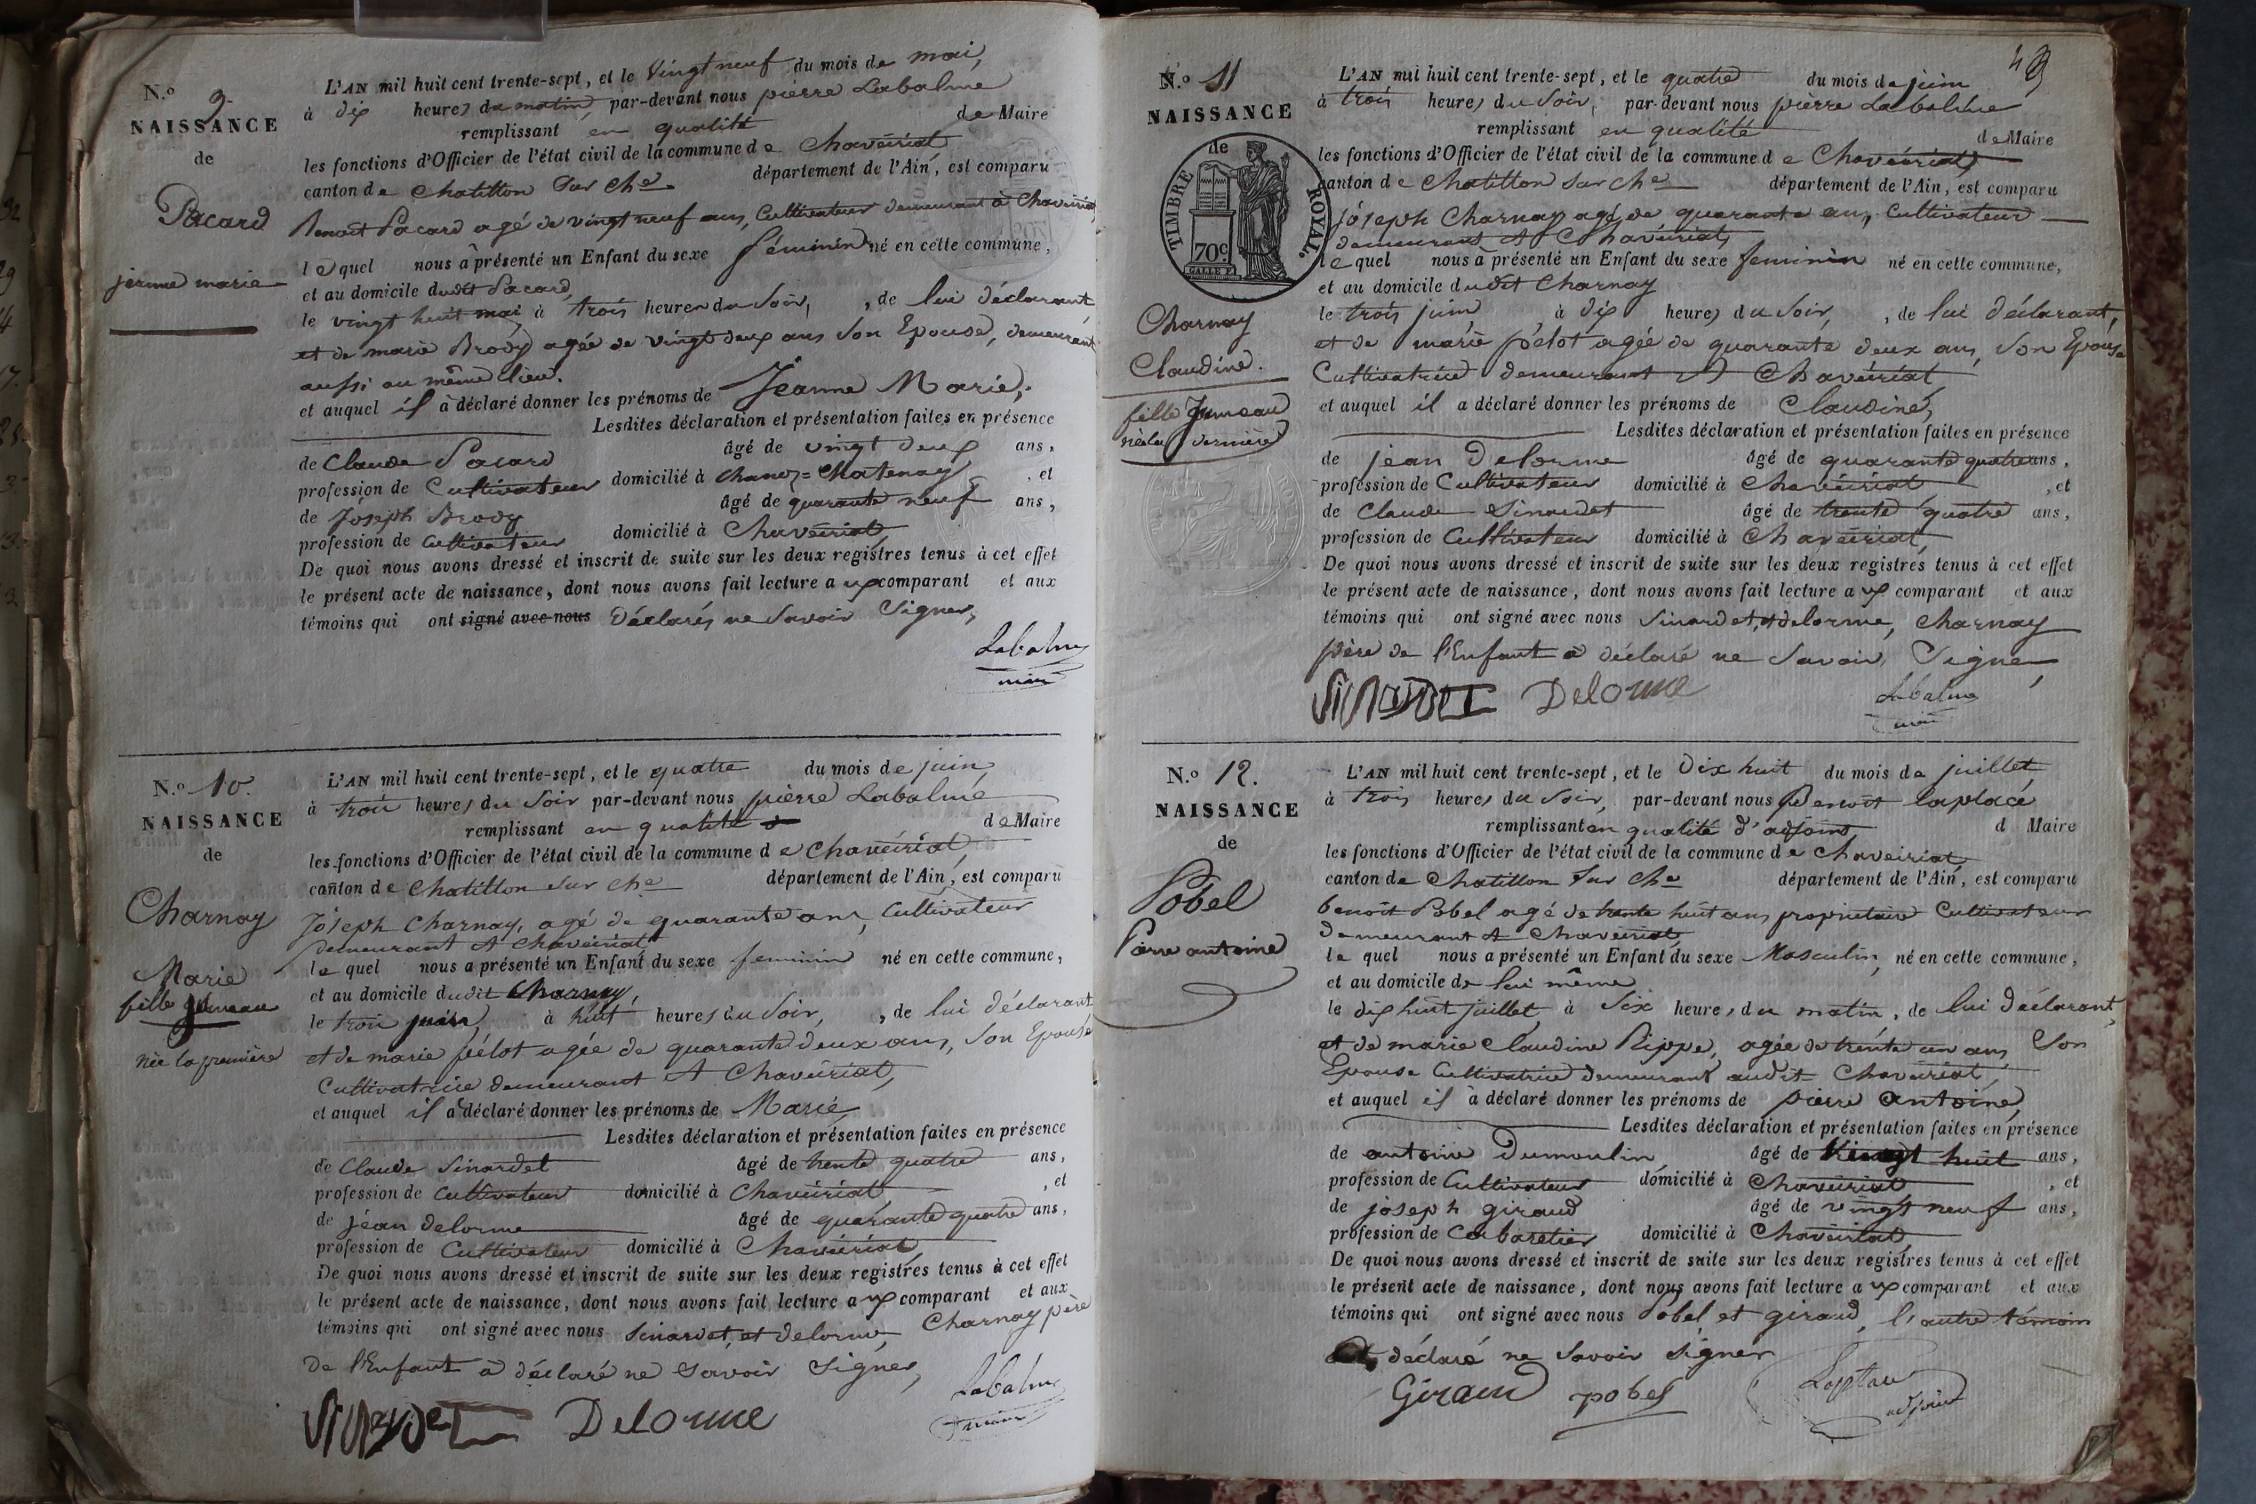 N.o 9.
NAISSANCE
de
Pacard
jeanne marie
L'AN mil huit cent trente-sept, et le vingt neuf du mois de mai,
à dix heures du matin, par-devant nous pierre Labalme
remplissant en qualité de Maire
les fonctions d'Officier de l'état civil de la commune de Chaveiriat
canton de Chatillon sur Che département de l'Ain, est comparu
Benoit Pacard agé de vingt neuf ans, Cultivateur demeurant à Chaveiriat
lequel nous à présenté un Enfant du sexe féminin né en cette commune,
et au domicile dudit Pacard,
le vingt huit mai à trois heures du Soir, , de lui déclarant
et de marie Brody agée de vingt deux ans son Epouse, demeurant
aussi au même lieu.
et auquel il à déclaré donner les prénoms de Jeanne Marie,
Lesdites déclaration et présentation faites en présence
de Claude Pacard âgé de vingt deux ans,
profession de Cultivateur domicilié à Chanoz=Chatenay , et
de Joseph Brody âgé de quarante neuf ans,
profession de Cultivateur domicilié à Chaveiriat
De quoi nous avons dressé et inscrit de suite sur les deux registres tenus à cet effet
le présent acte de naissance, dont nous avons fait lecture aux comparant et aux
témoins qui ont signé avec nous Déclarés ne Savoir Signer,
Labalme
maire
N.o 10.
NAISSANCE
de
Charnay
Marie
fille jumeau
née la première
L'AN mil huit cent trente-sept, et le quatre du mois de juin,
à trois heures du Soir par-devant nous pierre Labalme
remplissant en qualité de Maire
les fonctions d'Officier de l'état civil de la commune de Chaveiriat,
canton de Chatillon sur Che département de l'Ain, est comparu
Joseph Charnay, agé de quarante ans, Cultivateur
demeurant A Chaveiriat
lequel nous a présenté un Enfant du sexe feminin né en cette commune,
et au domicile dudit Charnay,
le trois juin, à huit heures du Soir, , de lui déclarant
et de marie pélot agée de quarante deux ans, Son Epouse
Cultivatrice demeurant A Chaveiriat,
et auquel il a déclaré donner les prénoms de Marie
Lesdites déclaration et présentation faites en présence
de Claude Sinardet âgé de trente quatre ans,
profession de Cultivateur domicilié à Chaveiriat , et
de jean delorme âgé de quarante quatre ans,
profession de Cultivateur domicilié à Chaveiriat
De quoi nous avons dressé et inscrit de suite sur les deux registres tenus à cet effet
le présent acte de naissance, dont nous avons fait lecture aux comparant et aux
témoins qui ont signé avec nous Sinardet, et delorme, Charnay père
de l'Enfant a déclaré ne Savoir Signer,
SINARDET Delorme
Labalme
maire
N.o 11
NAISSANCE
de
TIMBRE ROYAL.
70c
Charnay
Claudine.
fille Jumeau
née la dernière
L'AN mil huit cent trente-sept, et le quatre du mois de juin
à trois heures du Soir, par-devant nous pierre Labalme
remplissant en qualité de Maire
les fonctions d'Officier de l'état civil de la commune de Chaveiriat
canton de Chatillon sur Che département de l'Ain, est comparu
joseph Charnay agé de quarante ans, Cultivateur
demeurant A Chaveriat,
lequel nous à présenté un Enfant du sexe feminin né en cette commune,
et au domicile dudit Charnay
le trois juin à dix heures du Soir, , de lui déclarant,
et de marie pélot agée de quarante deux ans, Son Epouse
Cultivatrice demeurant A Chaveiriat
et auquel il a déclaré donner les prénoms de Claudine,
Lesdites déclaration et présentation faites en présence
de jean Delorme âgé de quarante quatre ans,
profession de Cultivateur domicilié à Chaveiriat , et
de Claude Sinardet âgé de trente quatre ans,
profession de Cultivateur domicilié à Chaveiriat
De quoi nous avons dressé et inscrit de suite sur les deux registres tenus à cet effet
le présent acte de naissance, dont nous avons fait lecture aux comparant et aux
témoins qui ont signé avec nous Sinardet, et delorme, Charnay
père de l'Enfant a déclaré ne Savoir Signer
SINARDET Delorme
Labalme
maire
N.o 12.
NAISSANCE
de
Pobel
Pierre antoine
L'AN mil huit cent trente-sept, et le Dix huit du mois de juillet
à trois heures du Soir, par-devant nous Benoit laplace
remplissant en qualité d'adjoint, d Maire
les fonctions d'Officier de l'état civil de la commune de Chaveiriat
canton de Chatillon sur Che département de l'Ain, est comparu
benoit Pobel agé de trente huit ans propriétaire Cultivateur
demeurant A Chaveiriat
lequel nous a présenté un Enfant du sexe Masculin, né en cette commune,
et au domicile de lui même
le dix huit juillet à Six heures du matin, de lui déclarant,
et de marie Claudine Rippe, agée de trente un ans Son
Epouse Cultivatrice demeurant audit Chaveiriat,
et auquel il à déclaré donner les prénoms de pierre antoine,
Lesdites déclaration et présentation faites en présence
de antoine Dumoulin âgé de vingt huit ans,
profession de Cultivateur domicilié à Chaveiriat , et
de joseph giraud âgé de vingt neuf ans,
profession de Cabaretier domicilié à Chaveiriat
De quoi nous avons dressé et inscrit de suite sur les deux registres tenus à cet effet
le présent acte de naissance, dont nous avons fait lecture aux comparant et aux
témoins qui ont signé avec nous Pobel et giraud, l'autre témoin
déclaré ne Savoir signer
Giraud pobel
Laplace
adjoint